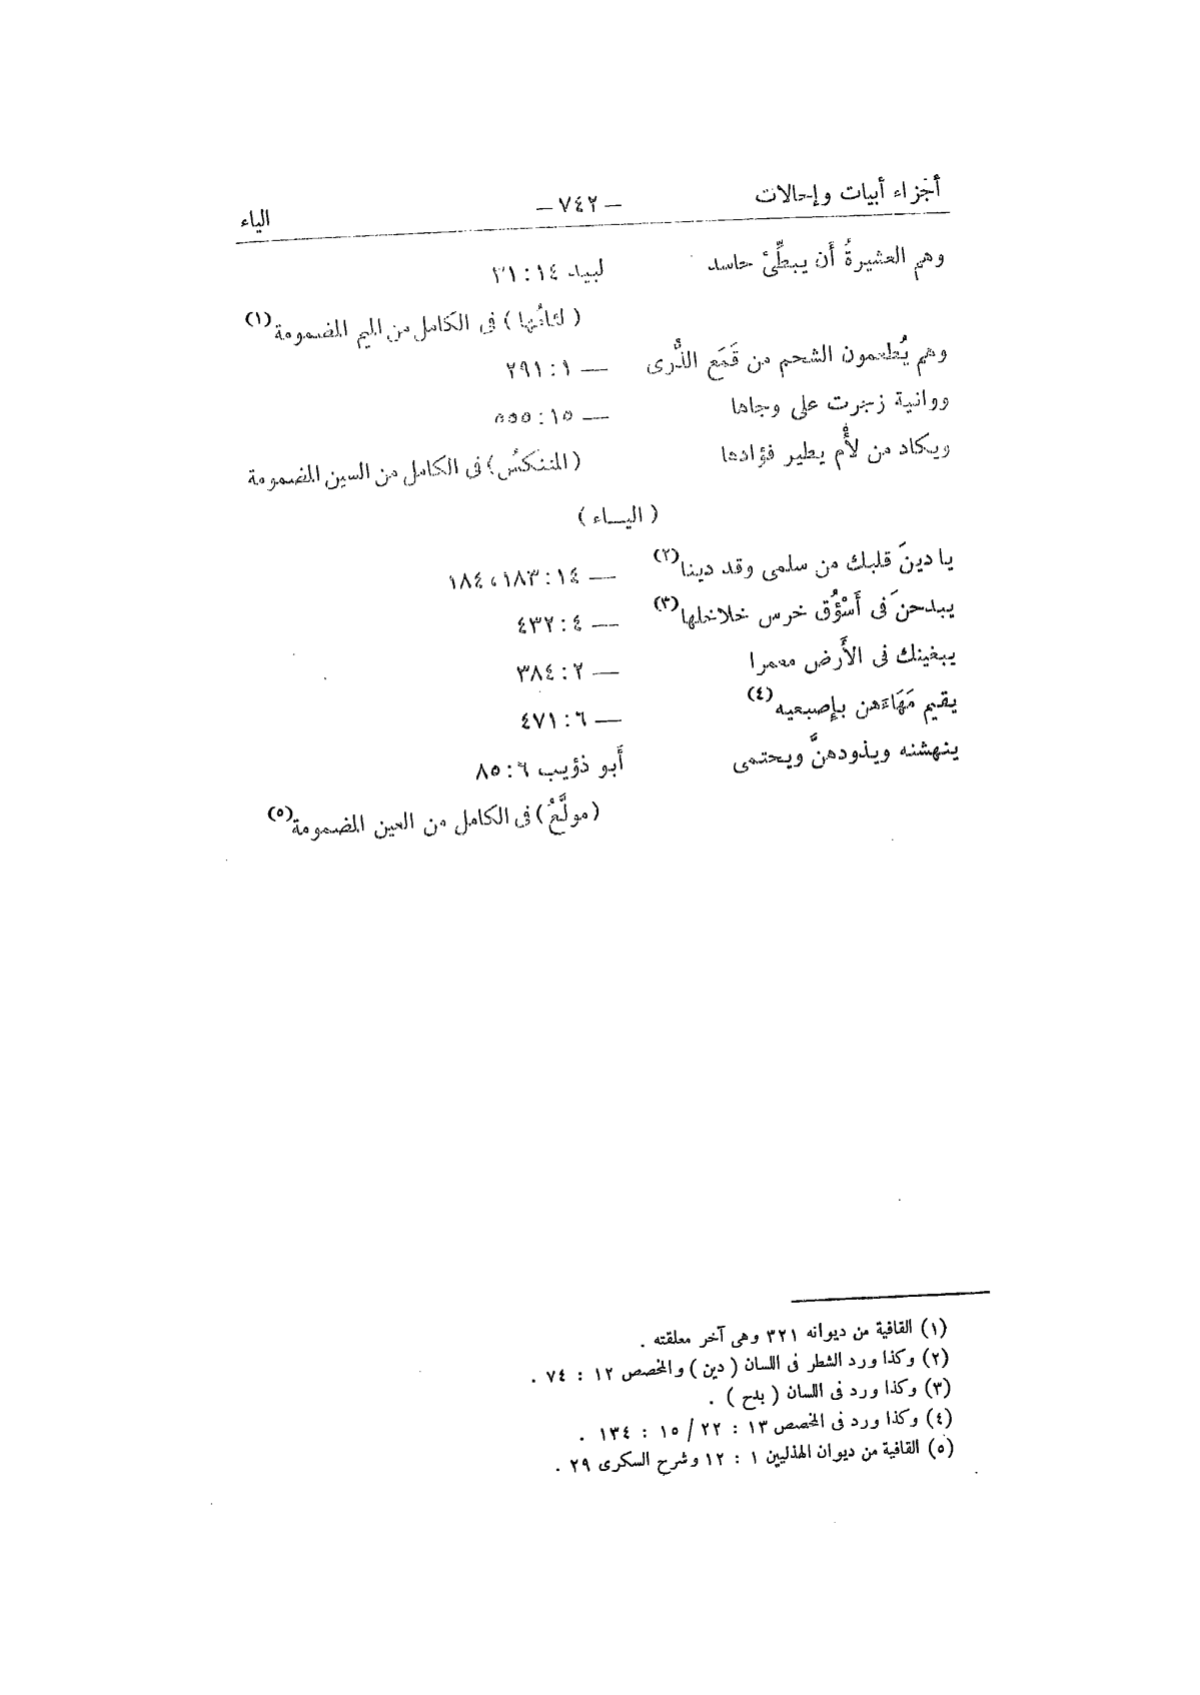 أجزاء أبيات وإحالات — ٧٤٢ — الياء
وهم العشيرةُ أن يبطِّئ حاسد لبيد ١٤ : ٢١
( لئامُها ) فى الكامل من الميم المضمومة (١)
وهم يُطعمون الشحم من قَمَع الذُّرى — ١ : ٢٩١
ووانية زجرت على وجاها — ١٥ : ٥٥٥
ويكاد من لأْم يطير فؤادها ( المتنكسُ ) فى الكامل من السين المضمومة
( اليـــاء )
يا دينَ قلبك من سلمى وقد دينا (٢) — ١٤ : ١٨٣ ، ١٨٤
يبدحنَ فى أَسْؤُق خرس خلاخلها (٣) — ٤ : ٤٣٢
يبغينك فى الأَرض معمرا — ٢ : ٣٨٤
يقيم مَهَاءَهن بإصبعيه (٤) — ٦ : ٤٧١
ينهشنه ويذودهنَّ ويحتمى أَبو ذؤيب ٦ : ٨٥
( مولَّعُ ) فى الكامل من العين المضمومة (٥)
(١) القافية من ديوانه ٣٢١ وهى آخر معلقته .
(٢) وكذا ورد الشطر فى اللسان ( دين ) والمخصص ١٢ : ٧٤ .
(٣) وكذا ورد فى اللسان ( بدح ) .
(٤) وكذا ورد فى المخصص ١٣ : ٢٢ / ١٥ : ١٣٤ .
(٥) القافية من ديوان الهذليين ١ : ١٢ وشرح السكرى ٢٩ .